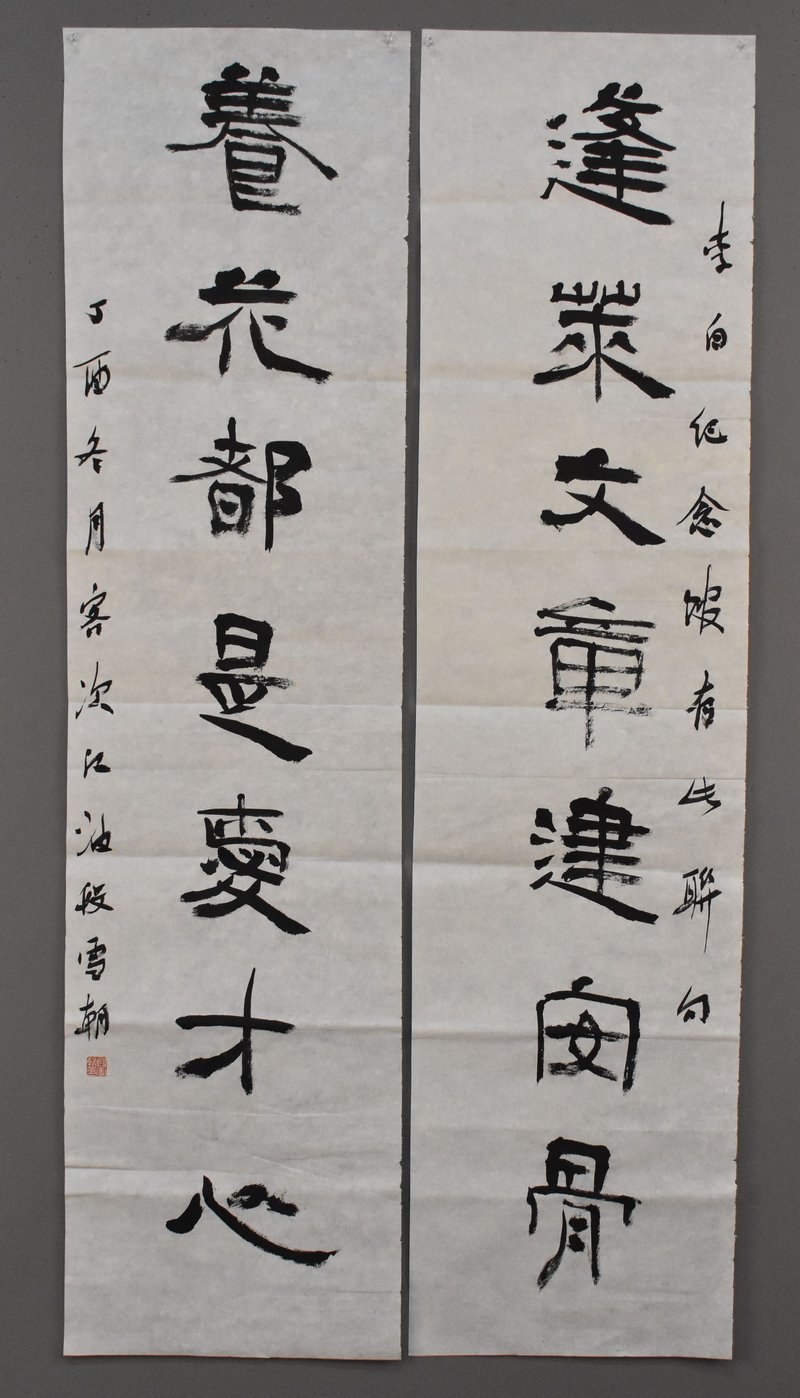 李白纪念馆有此联句
蓬莱文章建安骨
養花都是愛才心
丁酉冬月客次江油段雪朝